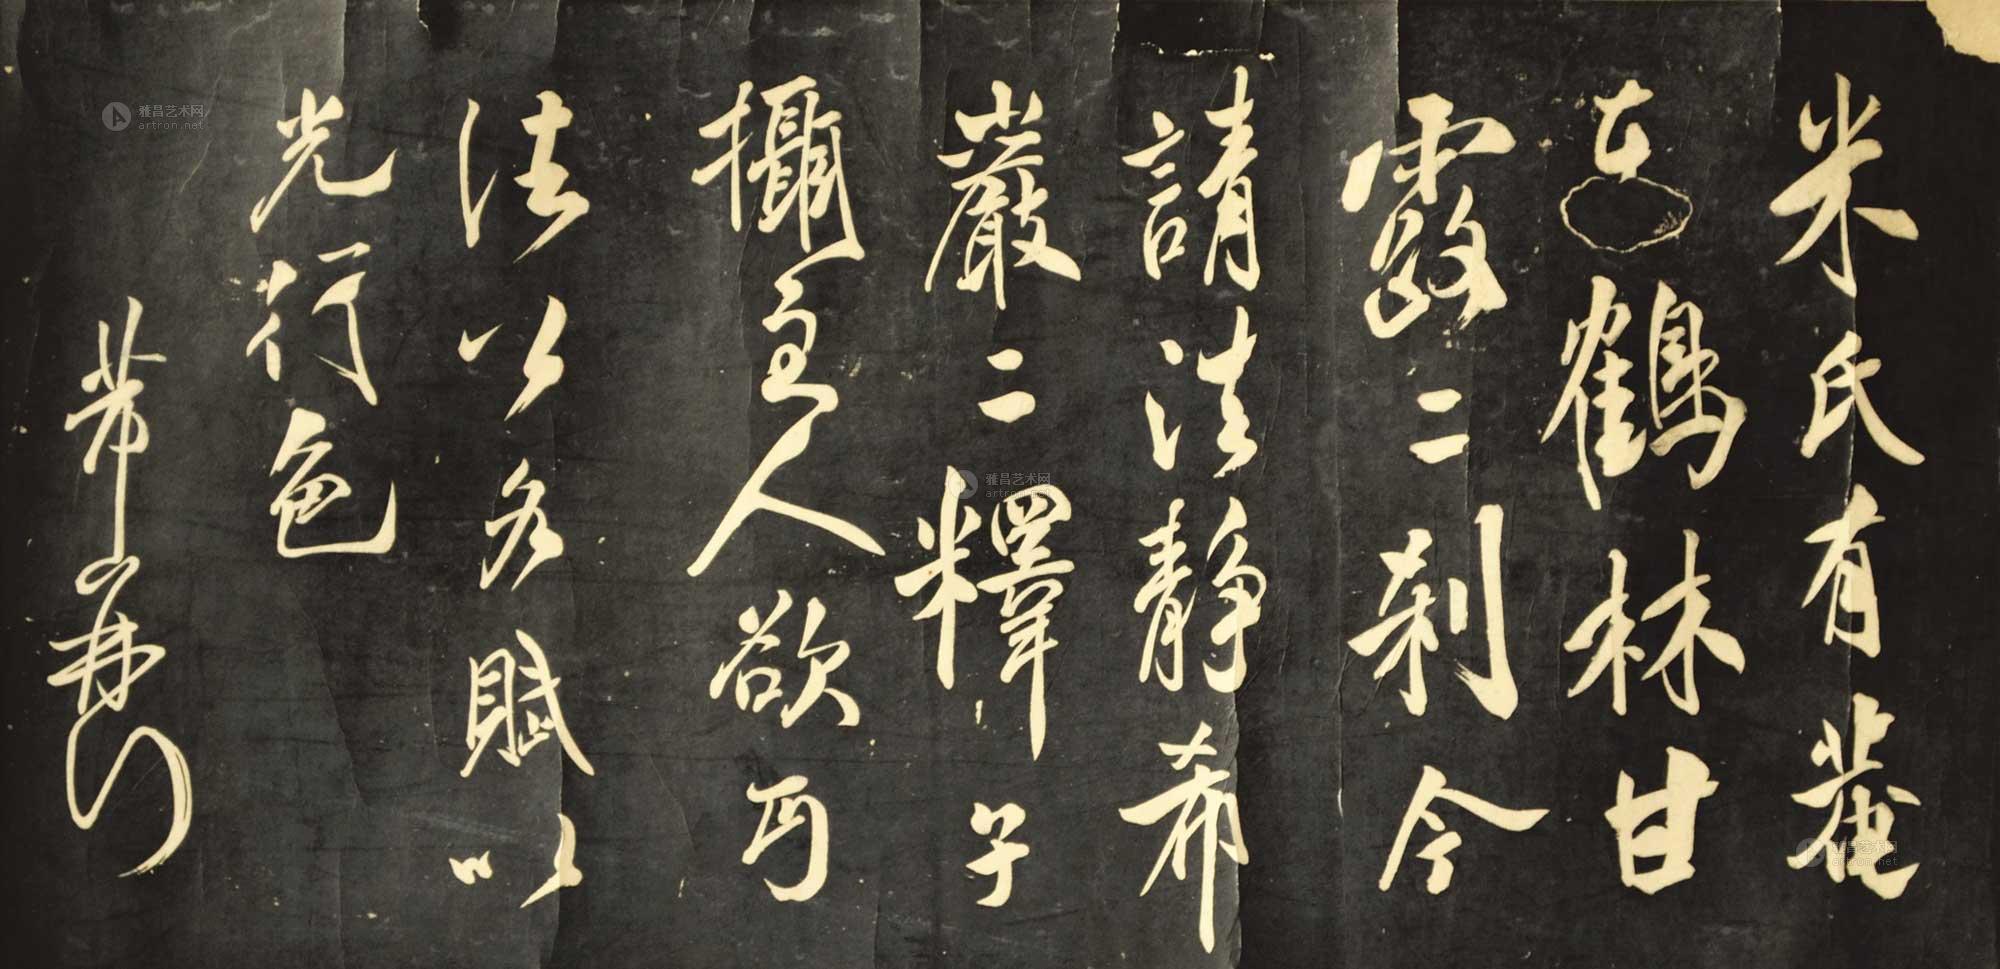 米氏有菴
在鶴林甘
露二刹今
請法静希
嚴二釋子
攝主人欲丐
法以名賦以
光行色
芾
雅昌艺术网
artron.net
雅昌艺术网
artron.net
雅昌艺术网
artron.net